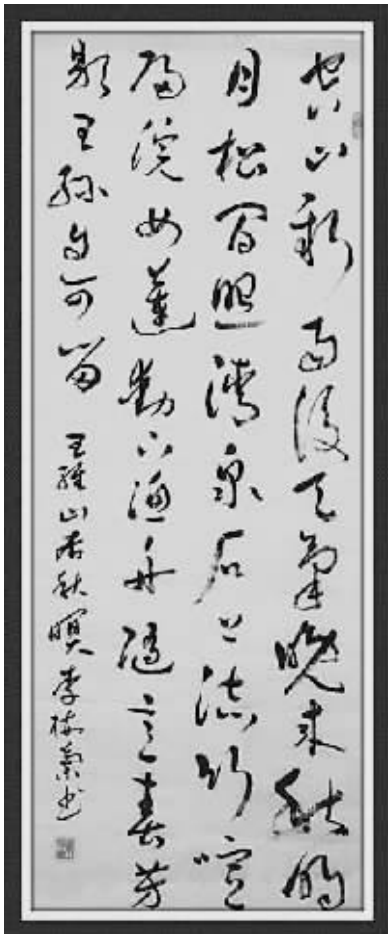 空山新雨後天氣晚来秋明
月松間照清泉石上流竹喧
歸浣女蓮動下漁舟隨意春芳
歇王孫自可留 王維山居秋暝 李書